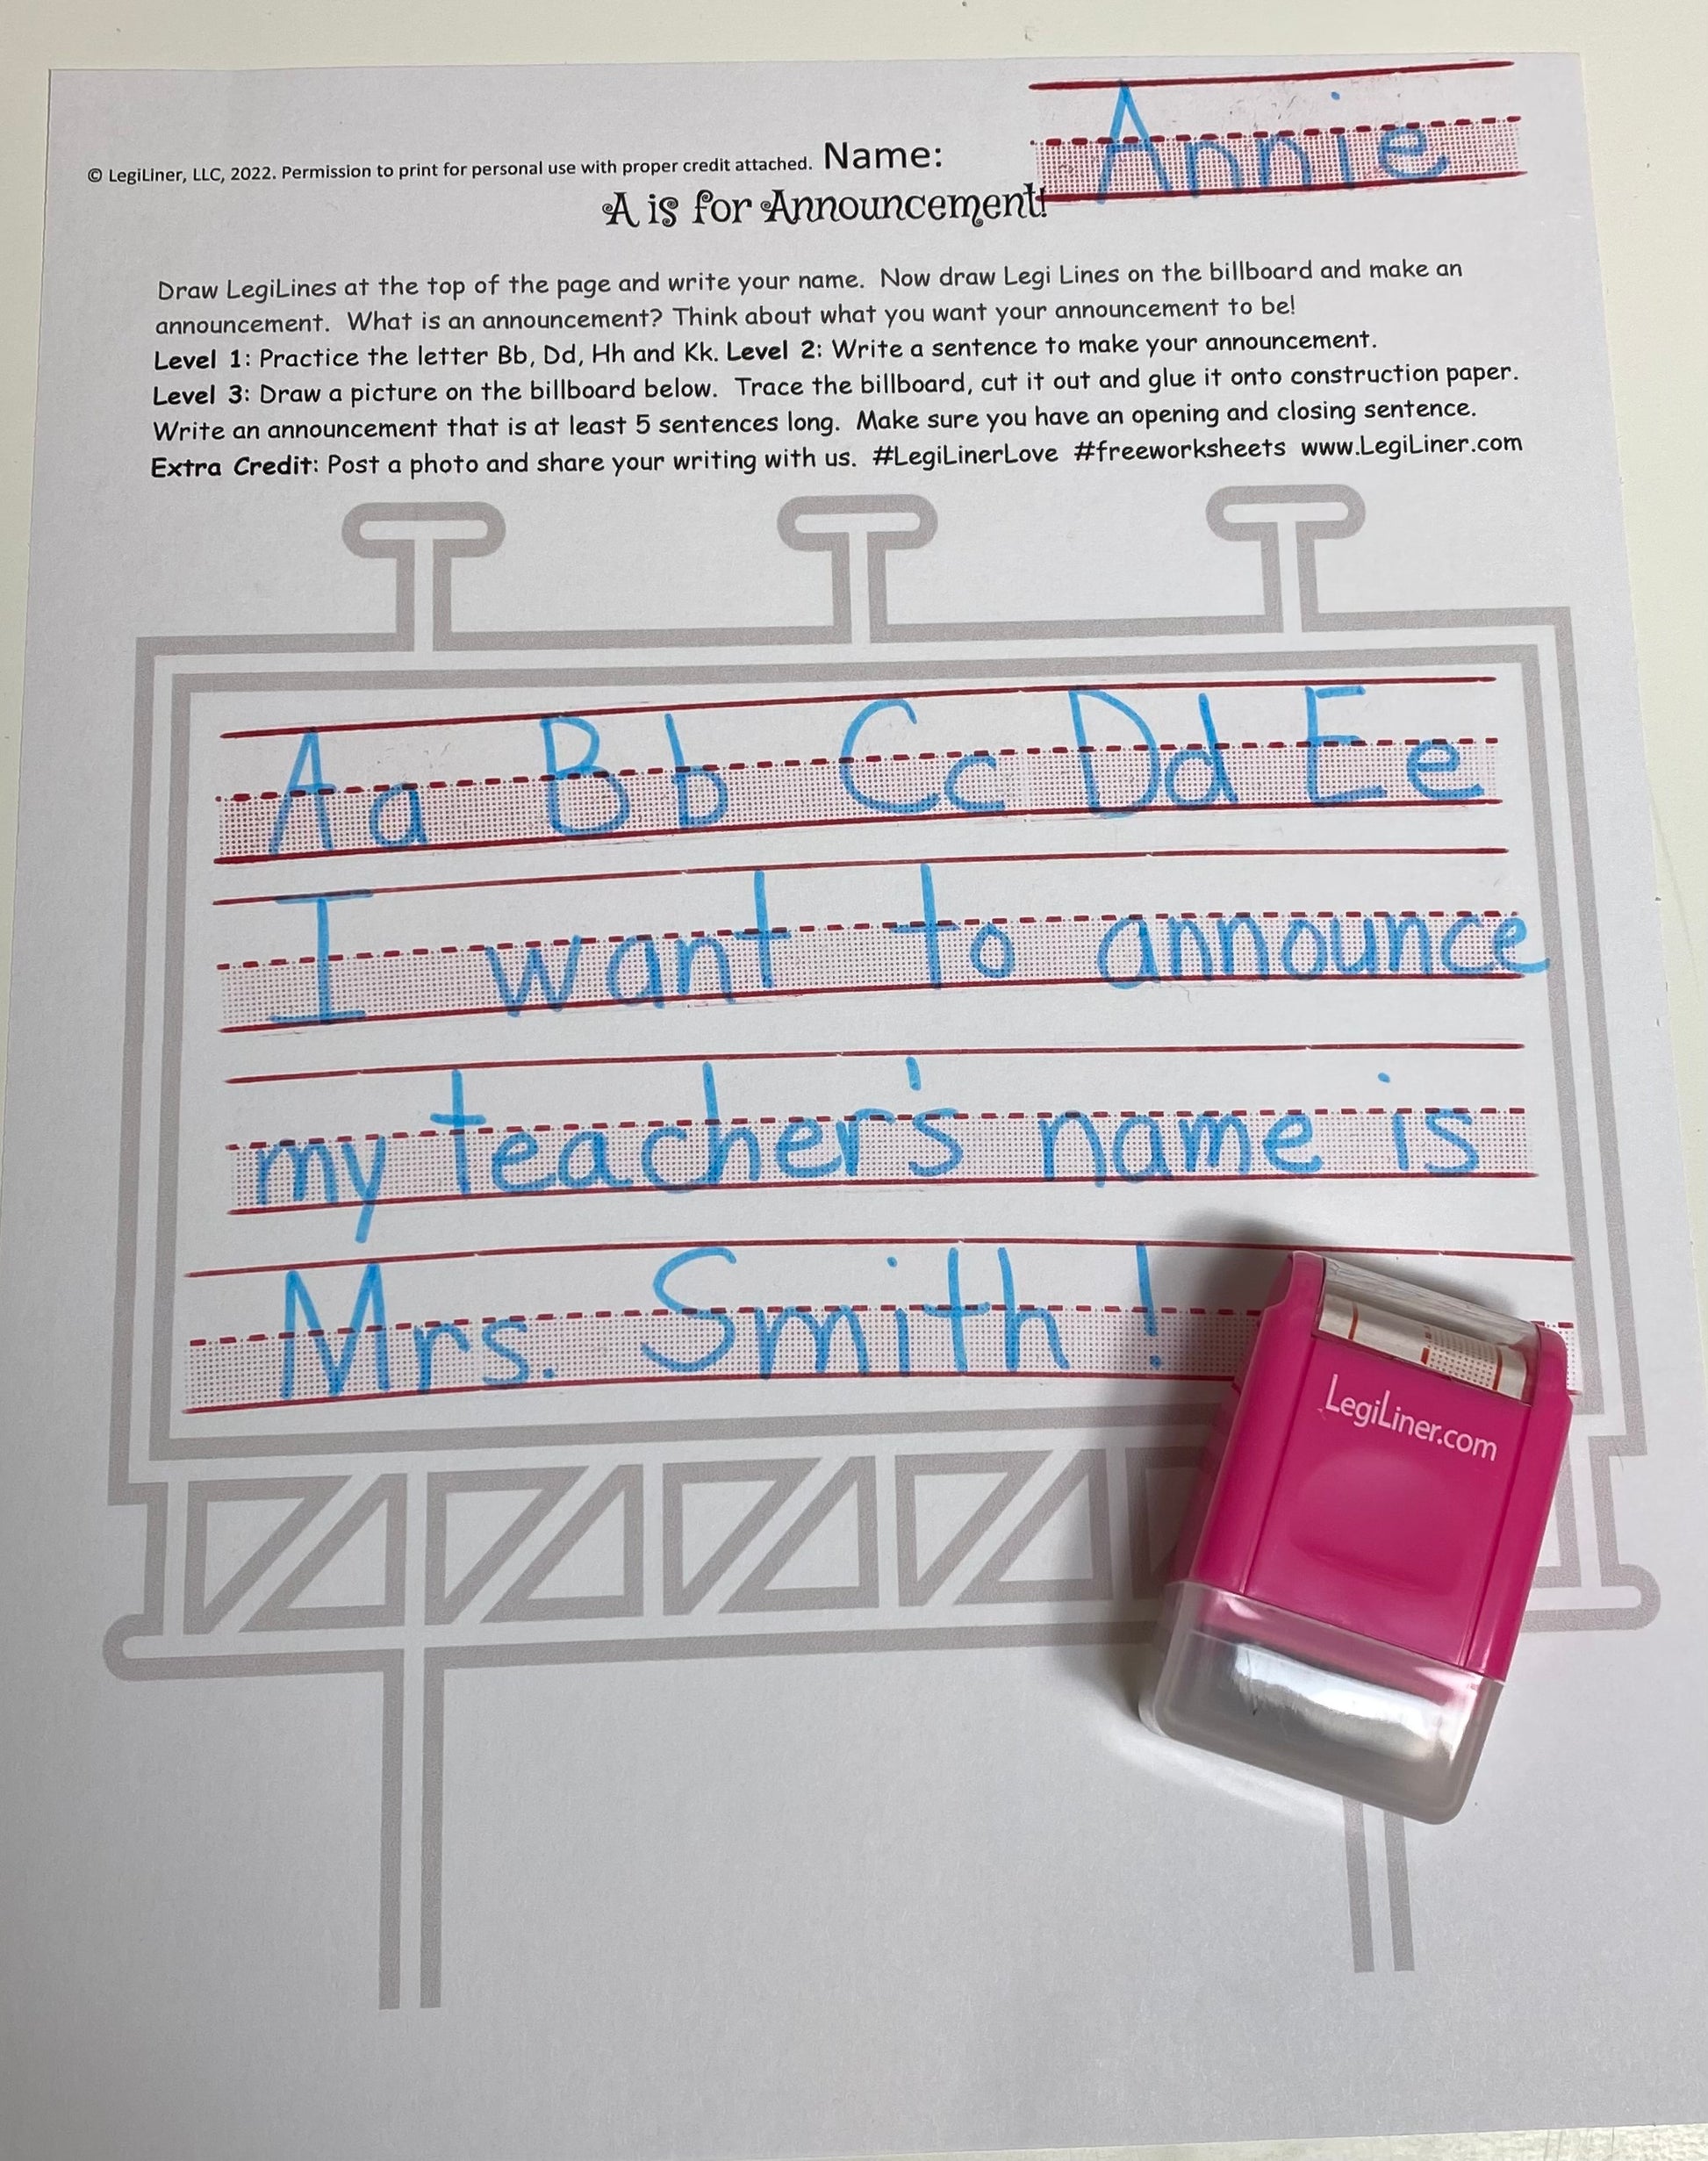 © LegiLiner, LLC, 2022. Permission to print for personal use with proper credit attached. Name: Annie
A is for Announcement!
Draw LegiLines at the top of the page and write your name. Now draw Legi Lines on the billboard and make an
announcement. What is an announcement? Think about what you want your announcement to be!
Level 1: Practice the letter Bb, Dd, Hh and Kk. Level 2: Write a sentence to make your announcement.
Level 3: Draw a picture on the billboard below. Trace the billboard, cut it out and glue it onto construction paper.
Write an announcement that is at least 5 sentences long. Make sure you have an opening and closing sentence.
Extra Credit: Post a photo and share your writing with us. #LegiLinerLove #freeworksheets www.LegiLiner.com
Aa Bb Cc Dd Ee
I want to announce
my teacher's name is
Mrs. Smith!
LegiLiner.com